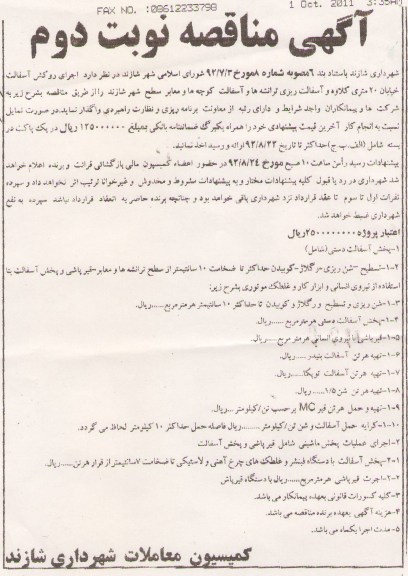 FAX NO. :08612233798 1 Oct. 2011 3:35
آگهی مناقصه نوبت دوم
شهرداری شازند باستناد بند ۶مصوبه شماره ۸مورخ ۹۲/۷/۳ شورای اسلامی شهر شازند در نظر دارد اجرای روکش آسفالت
خیابان ۲۰ متری گلاوه و آسفالت ریزی ترانشه ها و آسفالت کوچه ها و معابر سطح شهر شازند را از طریق مناقصه بشرح زیر به
شرکت ها و پیمانکاران واجد شرایط و دارای رتبه از معاونت برنامه ریزی و نظارت راهبردی واگذار نماید.در صورت تمایل
نسبت به انجام کار آخرین قیمت پیشنهادی خود را همراه بکبرگ ضمانتنامه بانکی بمبلغ ۱۲۵۰۰۰۰۰۰ ریال در یک پاکت در
بسته شامل (الف.ب.ج)حداکثر تا تاریخ ۹۲/۸/۲۳ ارائه و رسید اخذ نمائید.
پیشنهادات رسید رأس ساعت ۱۰ صبح مورخ ۹۲/۸/۲۴ در حضور اعضاء کمیسیون مالی بازگشائی قرائت و برنده اعلام خواهد
شد شهرداری در رد یا قبول کلیه پیشنهادات مختار و به پیشنهادات مشروط و مخدوش و غیرخوانا ترتیب اثر نخواهد داد و سپرده
نفرات اول تا سوم تا عقد قرارداد نزد شهرداری باقی خواهد بود و چنانچه برنده حاضر به انعقاد قرارداد نباشد سپرده به نفع
شهرداری ضبط خواهد شد.
اعتبار پروژه ۲۵۰۰۰۰۰۰۰۰ریال
۱-پخش آسفالت دستی(شامل)
۱-۱-تسطیح -شن ریزی -رگلاژ-کوبیدن حداکثر تا ضخامت ۱۰ سانتیمتر از سطح ترانشه ها و معابر-قیر پاشی و پخش آسفالت بنا
استفاده از نیروی انسانی و ابزار کار و غلطک موتوری بشرح زیر:
۱-۳-شن ریزی و تسطیح و رگلاژ و کوبیدن تا حداکثر ۱۰ سانتیمتر هر مترمربع......ریال.
۱-۴-پخش آسفالت دستی هر مترمربع ......ریال.
۱-۵-قیرپاشی با نیروی انسانی هر متر مربع....ریال.
۱-۶-تهیه هر تن آسفالت بیندر .....ریال.
۱-۷-تهیه هر تن آسفالت توپکا......ریال.
۱-۸-تهیه هر تن شن ۱/۵.....ریال.
۱-۹-تهیه و حمل هر تن قیر MC بر حسب تن/کیلومتر ....ریال.
۱-۱۰-کرایه حمل آسفالت و شن تن/کیلومتر........ریال فاصله حمل حداکثر ۱۰ کیلومتر لحاظ می گردد.
۲-اجرای عملیات پخش ماشینی شامل قیرپاشی و پخش آسفالت
۲-۱-پخش آسفالت با دستگاه فینشر و غلطک های چرخ آهنی و لاستیکی تا ضخامت ۷سانتیمتر از قرار هر تن......ریال.
۲-۲-اجرت قیرپاشی هر مترمربع......ریال با دستگاه قیرپاش
۳-کلیه کسورات قانونی بعهده پیمانکار می باشد.
۴-هزینه آگهی بعهده برنده مناقصه می باشد.
۵-مدت اجرا یکماه می باشد.
کمیسیون معاملات شهرداری شازند